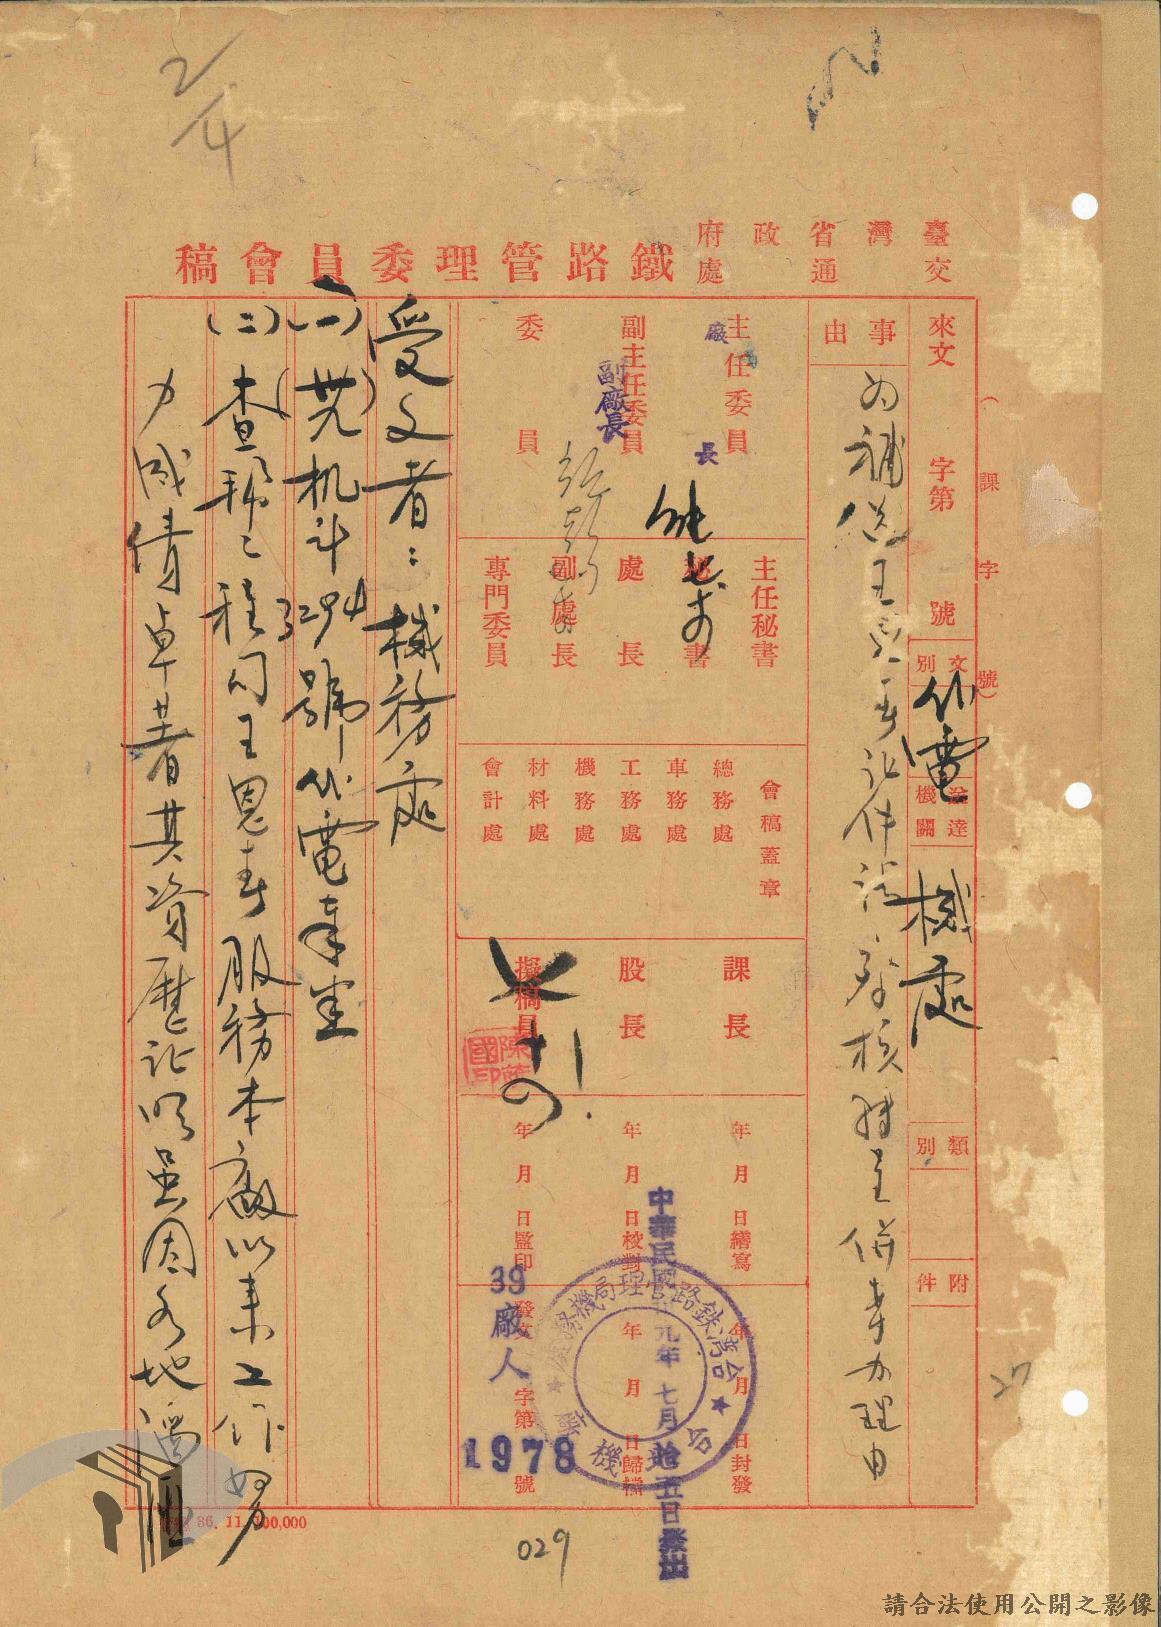 2/4
臺灣省政府
交通處
鐵路管理委員會稿
(課字號)
來文 字第 號
文別 代電
送達機關 機處
類別
附件
事由
為補送王恩 證件請 核轉呈併案办理由
主任委員
副主任委員
委員
廠長
副廠長
主任秘書
秘書
處長
副處長
專門委員
會稿蓋章
總務處
車務處
工務處
機務處
材料處
會計處
課長
股長
擬稿員
年月日繕寫
年月日校對
年月日監印
年月日封發
年月日歸檔
發文 字第 號
39廠人
1978
中華民國 九年七月拾五日發出
台灣鉄路管理局機務處
台北機廠
受文者:機務處
(一)(卅九)机计3294號代電奉悉
(二)查 工程司王恩 服務本廠以来工作努
力成績卓著其資歷証明虽因各地淪陷
86. 11. 100,000
029
27
請合法使用公開之影像